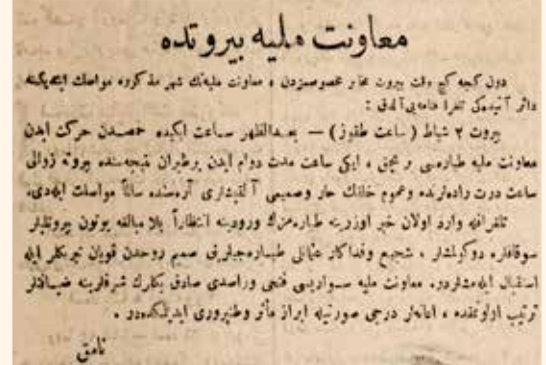 معاونت مليه بيروتده
دون كيجه كچ وقت بيروت مخابر مخصوصمزدن ، معاونت مليه‌نك شهر مذكوره مواصلت ايتديكنه
دائر آتيده‌كى تلغرافنامه‌يى آلدق :
بيروت ٢ شباط (ساعت طقوز) — بعدالظهر ساعت ايكيده حمصدن حركت ايدن
معاونت مليه طياره‌سى ، ايكى ساعت مدت دوام ايدن برطيران نتيجه‌سنده بيروته زوالى
ساعت درت راده‌لرنده وعموم خلقك حار وصميمى آلقيشلرى آره‌سنده سالماً مواصلت ايله‌دى.
تلغرافله وارد اولان خبر اوزرينه طياره‌مزك ورودينه انتظاراً بلا مبالغه بوتون بيروتليلر
سوقاقلره دوكولمشلر ، شجيع وفداكار عثمانلى طياره‌جيلرينى صميم روحدن قوپان تبريكلر ايله
استقبال ايله‌مشلردر. معاونت مليه سواريسى فتحى وراصدى صادق بكلرك شرفلرينه ضيافتلر
ترتيب اولونمقده ، اعانه‌لر درجى صورتيله ابراز مآثر وطنپرورى ايديلمكده‌در .
نامق